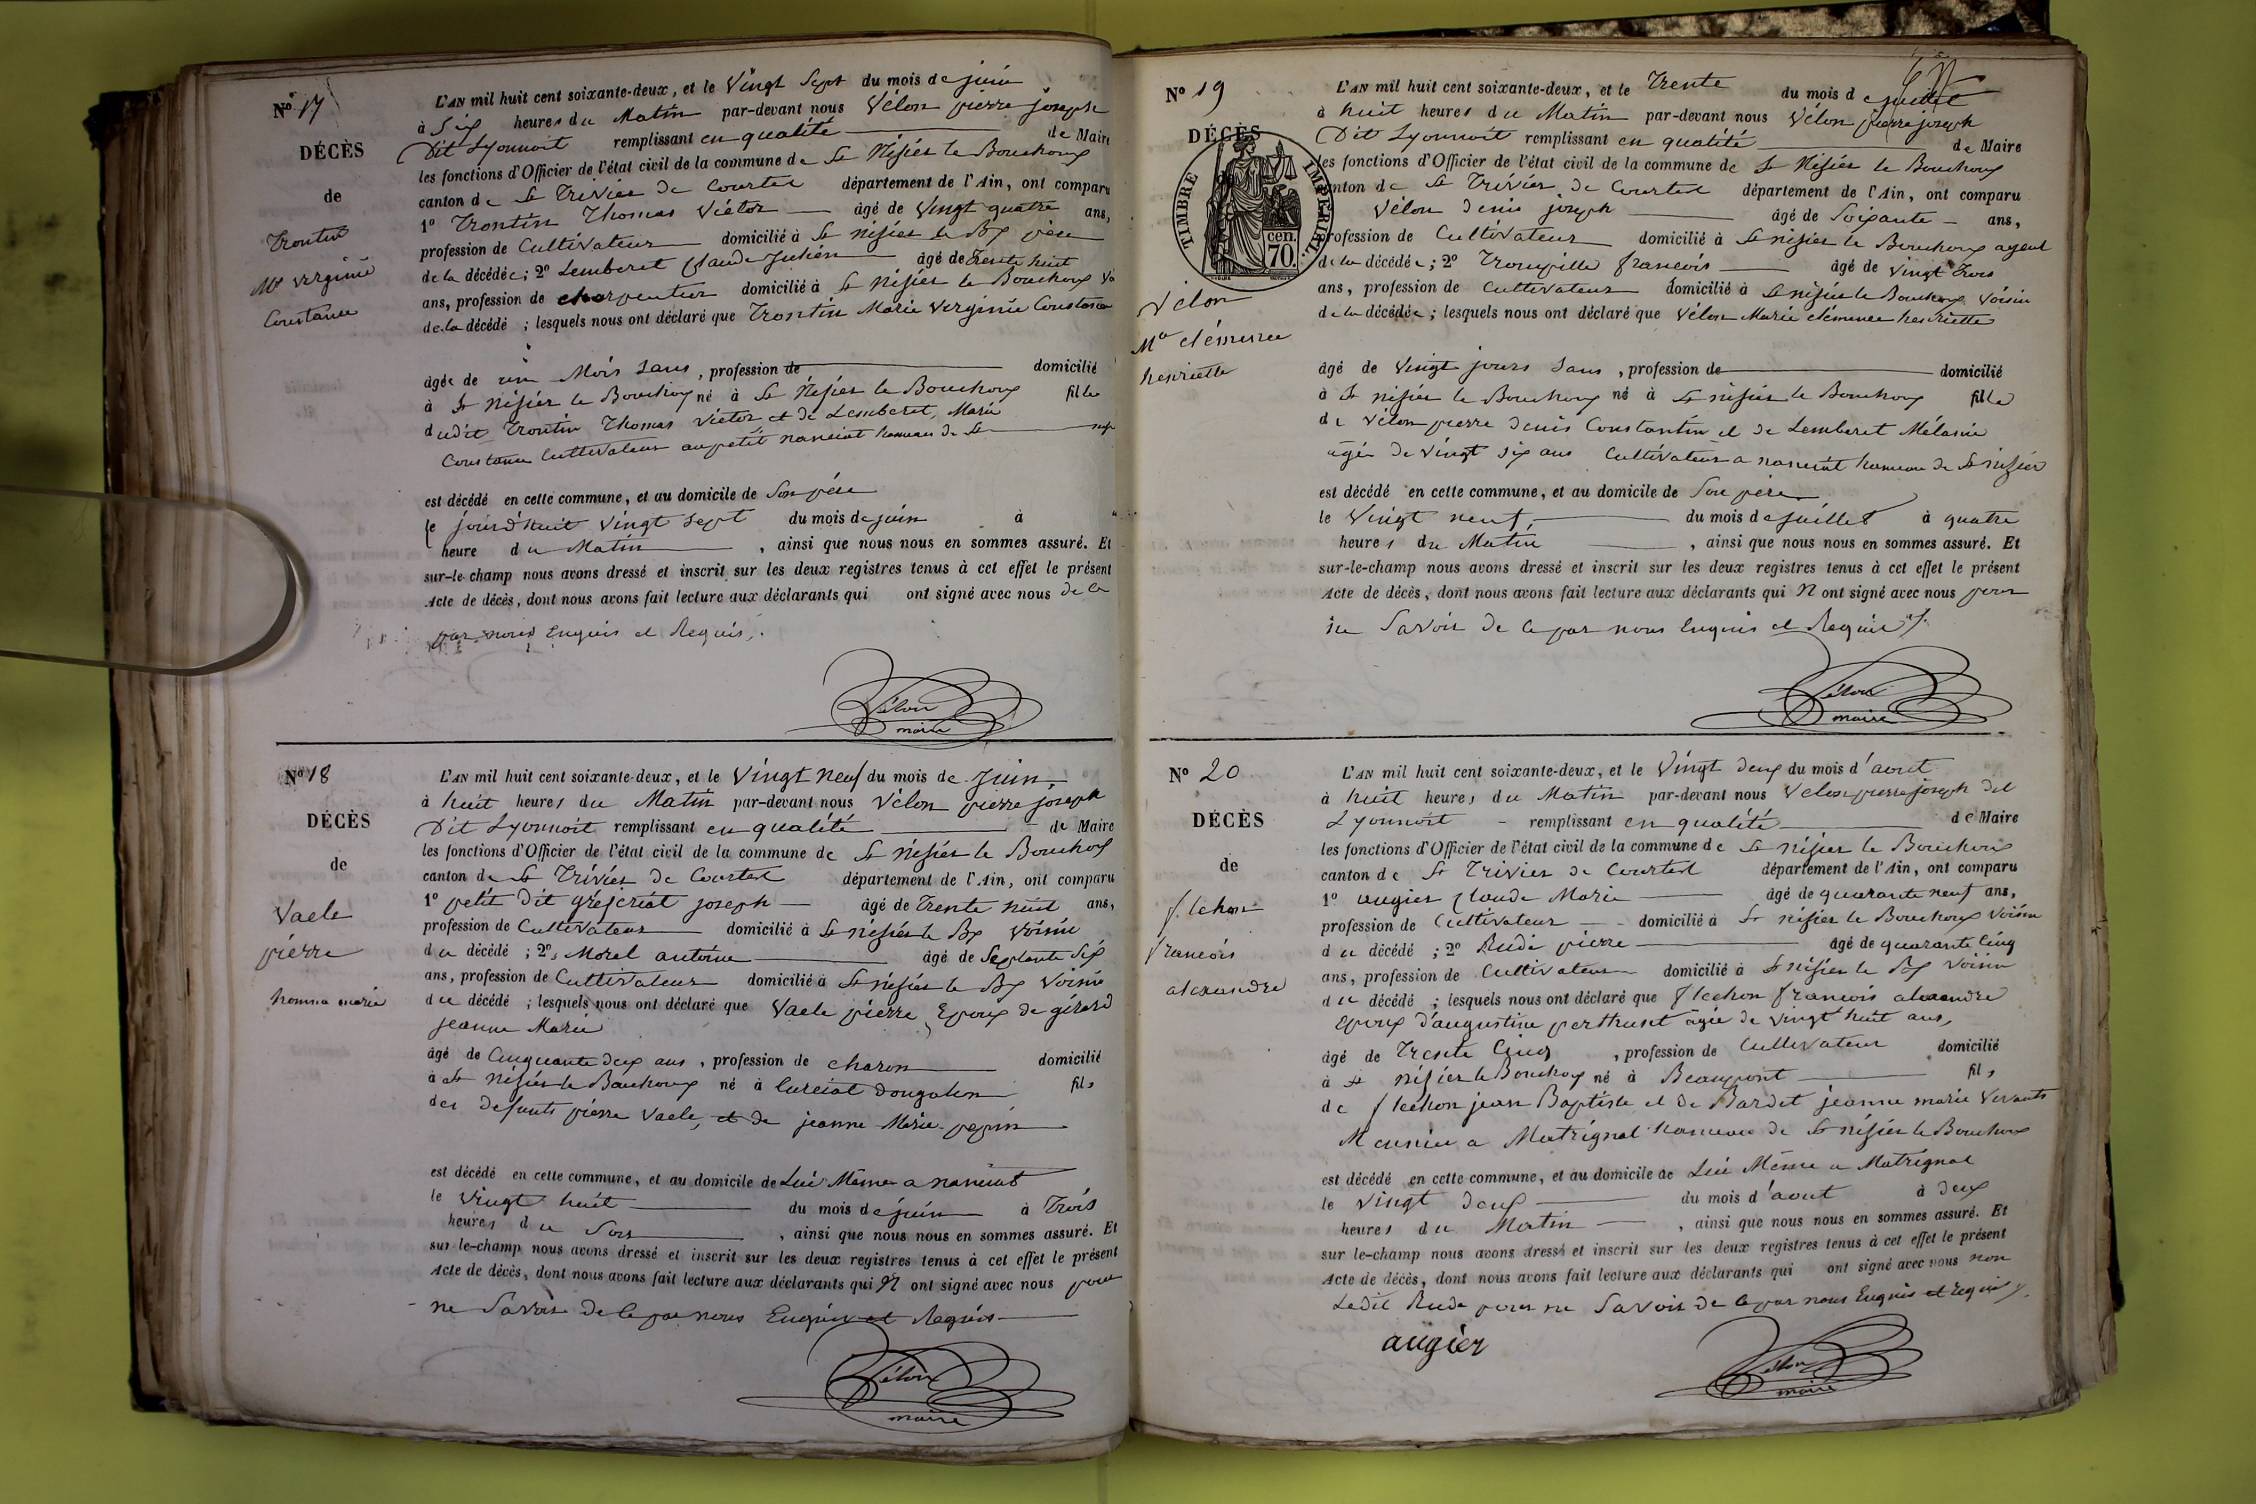 N° 17
DÉCÈS
de
Trontin
Mie Verginie
Constance
L'AN mil huit cent soixante-deux, et le Vingt Sept du mois de juin
à Six heures du Matin par-devant nous Vélon pierre joseph
Dit Lyonnoit remplissant en qualité de Maire
les fonctions d'Officier de l'état civil de la commune de St Nisier le Bouchoux
canton de St Trivier de Courtes département de l'Ain, ont comparu
1° Trontin Thomas Victor âgé de Vingt quatre ans,
profession de Cultivateur domicilié à St nisier le Bx père
de la décédée ; 2° Lemberet Claude Julien âgé de Trente huit
ans, profession de charpentier domicilié à St Nisier le Bouchoux
de la décédé ; lesquels nous ont déclaré que Trontin Marie Verginie Constance
âgée de un Mois Sans , profession de domicilié
à St Nisier le Bouchoux né à St Nisier le Bouchoux fille
dudit Trontin Thomas Victor et de Lemberet, Marie
Constance Cultivateur au petit nanciat hameau de St
est décédé en cette commune, et au domicile de Son père
le jourd'huit Vingt Sept du mois de juin à
heure du Matin , ainsi que nous nous en sommes assuré. Et
sur-le-champ nous avons dressé et inscrit sur les deux registres tenus à cet effet le présent
Acte de décès, dont nous avons fait lecture aux déclarants qui ont signé avec nous de ce
par nous Enquis et Requis.
Vélon
maire
N° 18
DÉCÈS
de
Vaele
pierre
homme marié
L'AN mil huit cent soixante-deux, et le Vingt neuf du mois de Juin
à huit heures du Matin par-devant nous Vélon pierre joseph
Dit Lyonnoit remplissant en qualité de Maire
les fonctions d'Officier de l'état civil de la commune de St Nisier le Bouchoux
canton de St Trivier de Courtes département de l'Ain, ont comparu
1° petit Dit gréjeriat joseph âgé de Trente huit ans,
profession de Cultivateur domicilié à St nisier le Bx Voisin
du décédé ; 2° Morel antoine âgé de Septante Six
ans, profession de Cultivateur domicilié à St nisier le Bx Voisin
du décédé ; lesquels nous ont déclaré que Vaele pierre, Epoux de gérard
jeanne Marie
âgé de Cinquante deux ans , profession de charon domicilié
à St Nisier le Bouchoux né à Curciat Dongalon fils
des Defunts pierre Vaele, et de jeanne Marie pepin
est décédé en cette commune, et au domicile de Lui Même a nanciat
le Vingt huit du mois de juin à Trois
heures du Soir , ainsi que nous nous en sommes assuré. Et
sur-le-champ nous avons dressé et inscrit sur les deux registres tenus à cet effet le présent
Acte de décès, dont nous avons fait lecture aux déclarants qui N ont signé avec nous pour
ne Savoir de ce par nous Enquis et Requis
Vélon
maire
N° 19
DÉCÈS
TIMBRE IMPÉRIAL
70 cen.
Vélon
Mie clémence
henriette
L'AN mil huit cent soixante-deux, et le Trente du mois de juillet
à huit heures du Matin par-devant nous Vélon pierre joseph
Dit Lyonnoit remplissant en qualité de Maire
les fonctions d'Officier de l'état civil de la commune de St Nisier le Bouchoux
canton de St Trivier de Courtes département de l'Ain, ont comparu
Vélon denis joseph âgé de Soixante ans,
profession de Cultivateur domicilié à St nisier le Bouchoux ayeul
de la décédée ; 2° Trouville francois âgé de Vingt Trois
ans, profession de Cultivateur domicilié à St nisier le Bouchoux Voisin
de la décédée ; lesquels nous ont déclaré que Vélon Marie clémence henriette
âgé de Vingt jours Sans , profession de domicilié
à St nisier le Bouchoux né à St nisier le Bouchoux fille
de Vélon pierre denis Constantin et de Lemberet Mélanie
agée de Vingt Six ans Cultivateur a nanciat hameau de St nisier
est décédé en cette commune, et au domicile de Son père
le Vingt neuf du mois de juillet à quatre
heures du Matin , ainsi que nous nous en sommes assuré. Et
sur-le-champ nous avons dressé et inscrit sur les deux registres tenus à cet effet le présent
Acte de décès, dont nous avons fait lecture aux déclarants qui N ont signé avec nous pour
ne Savoir de ce par nous Enquis et Requis
Vélon
maire
N° 20
DÉCÈS
de
flechon
francois
alexandre
L'AN mil huit cent soixante-deux, et le Vingt deux du mois d'aout
à huit heures du Matin par-devant nous Vélon pierre joseph dit
Lyonnoit remplissant en qualité de Maire
les fonctions d'Officier de l'état civil de la commune de St nisier le Bouchoux
canton de St Trivier de Courtes département de l'Ain, ont comparu
1° augier Claude Marie âgé de quarante neuf ans,
profession de Cultivateur domicilié à St nisier le Bouchoux Voisin
du décédé ; 2° Rude pierre âgé de quarante Cinq
ans, profession de Cultivateur domicilié à St nisier le Bx Voisin
du décédé ; lesquels nous ont déclaré que flechon francois alexandre
Epoux d'augustine perthuset agée de Vingt huit ans,
âgé de Trente Cinq , profession de Cultivateur domicilié
à St nisier le Bouchoux né à Beaupont fils
de flechon jean Baptiste et de Bardet jeanne marie Vivants
Meunier a Matrignat hameau de St nisier le Bouchoux
est décédé en cette commune, et au domicile de Lui Même a Matrignat
le Vingt deux du mois d'aout à deux
heures du Matin , ainsi que nous nous en sommes assuré. Et
sur le-champ nous avons dressé et inscrit sur les deux registres tenus à cet effet le présent
Acte de décès, dont nous avons fait lecture aux déclarants qui ont signé avec nous non
Ledit Rude pour ne Savoir de ce par nous Enquis et requis
augier
Vélon
maire